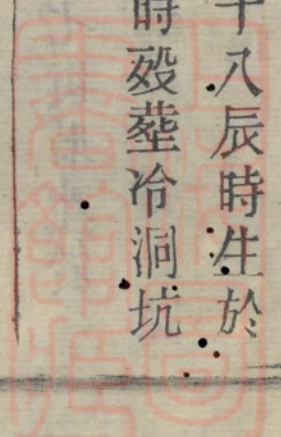 十八辰時生於
時殁塟冷洞坑